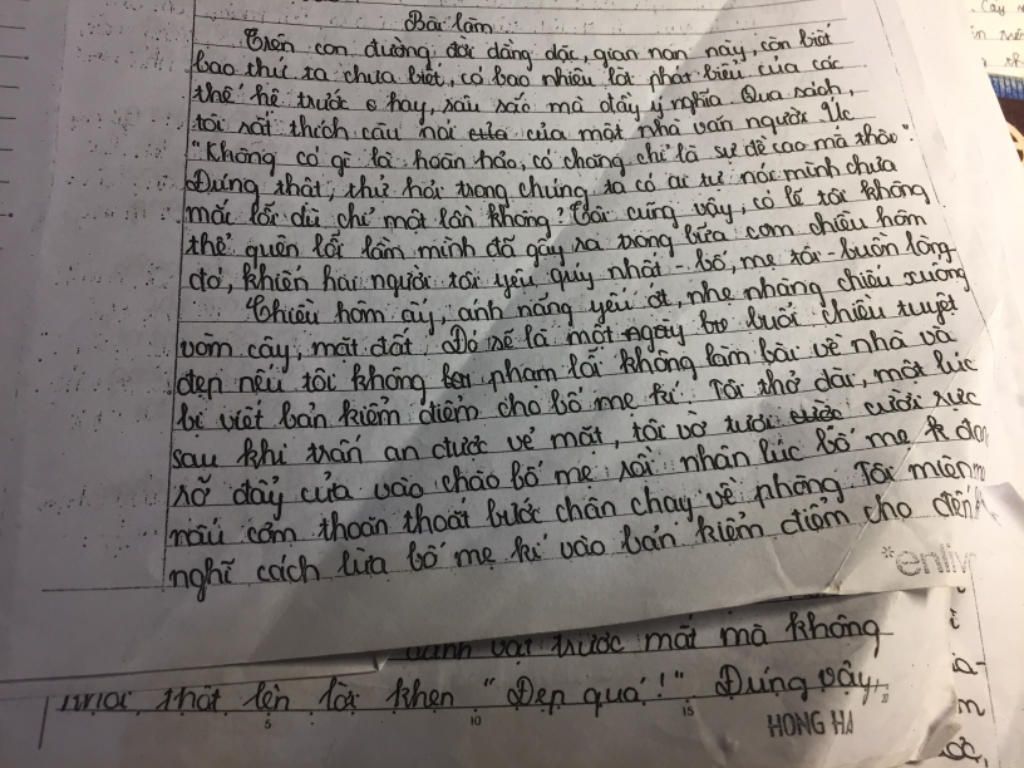 Bài làm
Trên con đường đời dằng dặc, gian nan này, còn biết
bao thứ ta chưa biết, có bao nhiêu lời phát biểu của các
thế hệ trước hay, sâu sắc mà đầy ý nghĩa. Qua sách,
tôi rất thích câu nói của của một nhà văn người Úc
"Không có gì là hoàn hảo, có chăng chỉ là sự đề cao mà thôi".
Đúng thật, thử hỏi trong chúng ta có ai tự nói mình chưa
mắc lỗi dù chỉ một lần không? Tôi cũng vậy, có lẽ tôi không
thể quên lỗi lầm mình đã gây ra trong bữa cơm chiều hôm
đó, khiến hai người tôi yêu quý nhất - bố, mẹ tôi - buồn lòng
Chiều hôm ấy, ánh nắng yếu ớt, nhẹ nhàng chiếu xuống
vòm cây, mặt đất. Đó sẽ là một ngày buổi chiều tuyệt
đẹp nếu tôi không phạm lỗi không làm bài về nhà và
bị viết bản kiểm điểm cho bố mẹ kí. Tôi thở dài, một lúc
sau khi trấn an được vẻ mặt, tôi vờ tươi cười rực
rỡ đẩy cửa vào chào bố mẹ rồi nhân lúc bố mẹ k
nấu cơm thoăn thoắt bước chân chạy về phòng Tôi miên
nghĩ cách lừa bố mẹ kí vào bản kiểm điểm cho đến
*enliv
trước mắt mà không
thật lên lời khen "Đẹp quá!" Đúng vậy,
5 10 15
HONG HA